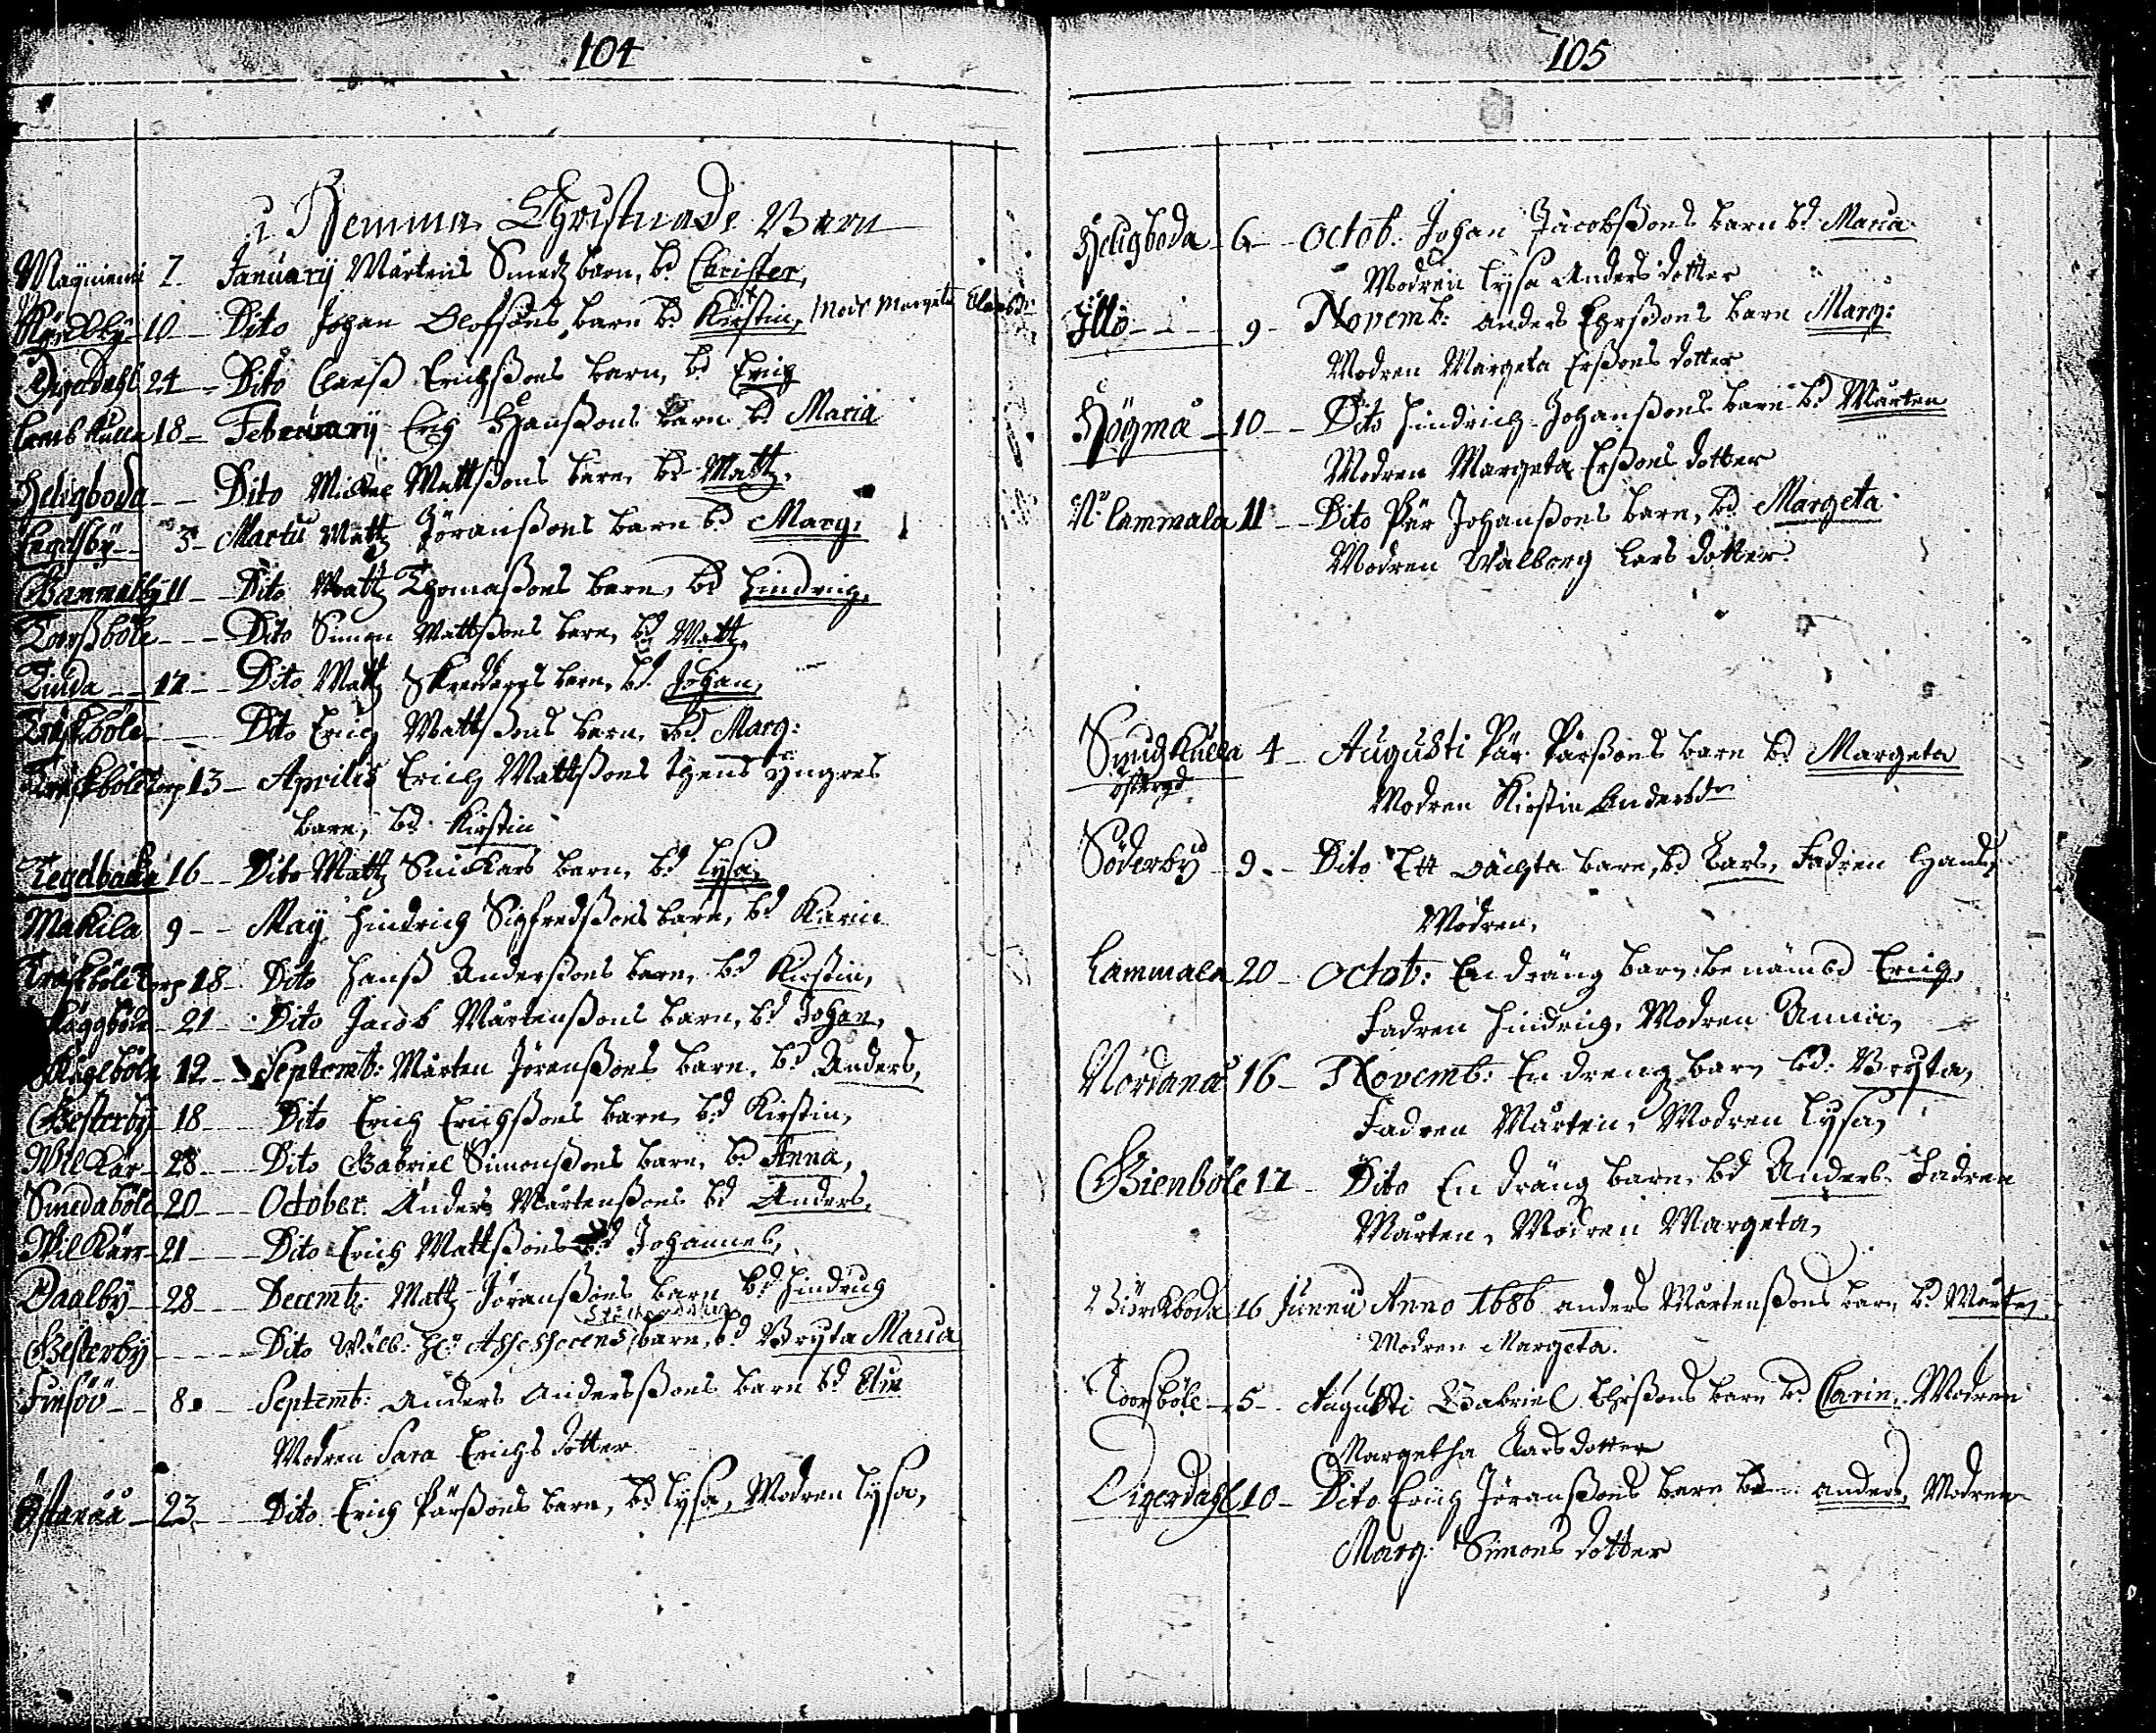 104
i Hemma Christnade Barn
Mayniemi 7. Januarij Mårtens Smedz barn, bd Christer,
10 Dito Johan Olofsons barn bd Kirstin, Mod: Margeta Claesdr
Digerdahl 24 Dito Claesß Erichßons barn, bd Erich
Lambkulla 18 Februarij Erich Hanßons barn bd Maria
Heligboda Dito Mickel Mattßons barn, bd Matz,
Engelsby 3 Martii Matz Jöranßons barn bd Marg:
Gammelby 11 Dito Matz Thomaßons barn, bd Hindrich,
Torßböle Dito Simon Mattßons barn, bd Matz,
Finda 12 Dito Matz Skreddares barn, bd Johan,
Träskböle Dito Erich Mattßons barn, bd Marg:
Träskböle torp 13 Aprilis Erich Mattßons thens Yngres
barn, bd Kirstin
Tegelbacka 16 Dito Matz Snickars barn, bd Lysa,
Makila 9 May Hindrich Sigfredßons barn, bd Karin
Träskböle torp 18 Dito Hanß Andersßons barn, bd Kirstin,
21 Dito Jacob Mårtenßons barn, bd Johan,
12 Septemb: Mårten Jörenßons barn, bd Anders,
Gesterby 18 Dito Erich Erichßons barn, bd Kirstin,
Wilkär 28 Dito Gabriel Simonßons barn, bd Anna,
Smedaböle 20 October. Anders Mårtenßons bd Anders,
Wilkärr 21 Dito Erich Mattßons bd Johannes,
Daalby 28 Decemb: Matz Jöranßons barn bd Hindrich
Gesterby Dito Wälb: Hr Assessorens barn, bd Bryta Maria
Finsöö 8 Septemb: Anders Andersßons barn bd Elin
Modren Sara Erichs dotter
Östanåå 23 Dito Erich Pärßons barn, bd Lysa, Modren Lysa,
105
Heligboda 6 Octob: Johan Jacobßons barn bd Maria
Modren Lysa Anders dotter
Illö 9 Novemb: Anders Ehrsßons barn Marg:
Modren Margeta Ersßons dotter
Högmå 10 Dito Hindrich Johanßons barn bd Mårten
Modren Margeta Ersßons dotter
N: Lammala 11 Dito Pär Johanßons barn, bd Margeta
Modren Walborg Lars dotter
Smidkulla 4 Augusti Pär Pärßons barn bd Margeta
Modren Kirstin Andersdr
Söderby 9 Dito Ett oächta barn, bd Lars, Fadren Hans,
Modren,
Lammala 20 Octob: En dräng barn benämbd Erich,
Fadren Hindrich, Modren Anna,
Nordanå 16 Novemb: En dreng barn bd: Bryta,
Fadren Mårten, Modren Lysa,
Gienböle 17 Dito En dräng barn, bd Anders, Fadren
Mårten, Modren Margeta,
Biörkboda 16 Junnii Anno 1686 anders Mårtenßons barn bd Mårten
Modren Margeta.
Torsböle 5 Augusti Gabriel Ehrßons barn bd Carin, Modren
Margetha Larsdotter
Digerdahl 10 Dito Erich Jöranßons barn bd anders, Modren
Marg: Simons dotter